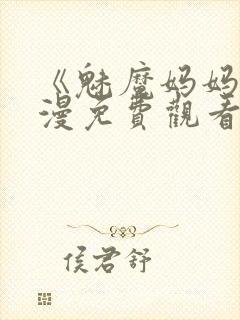 《魅魔妈妈
漫免費觀看
侯君舒